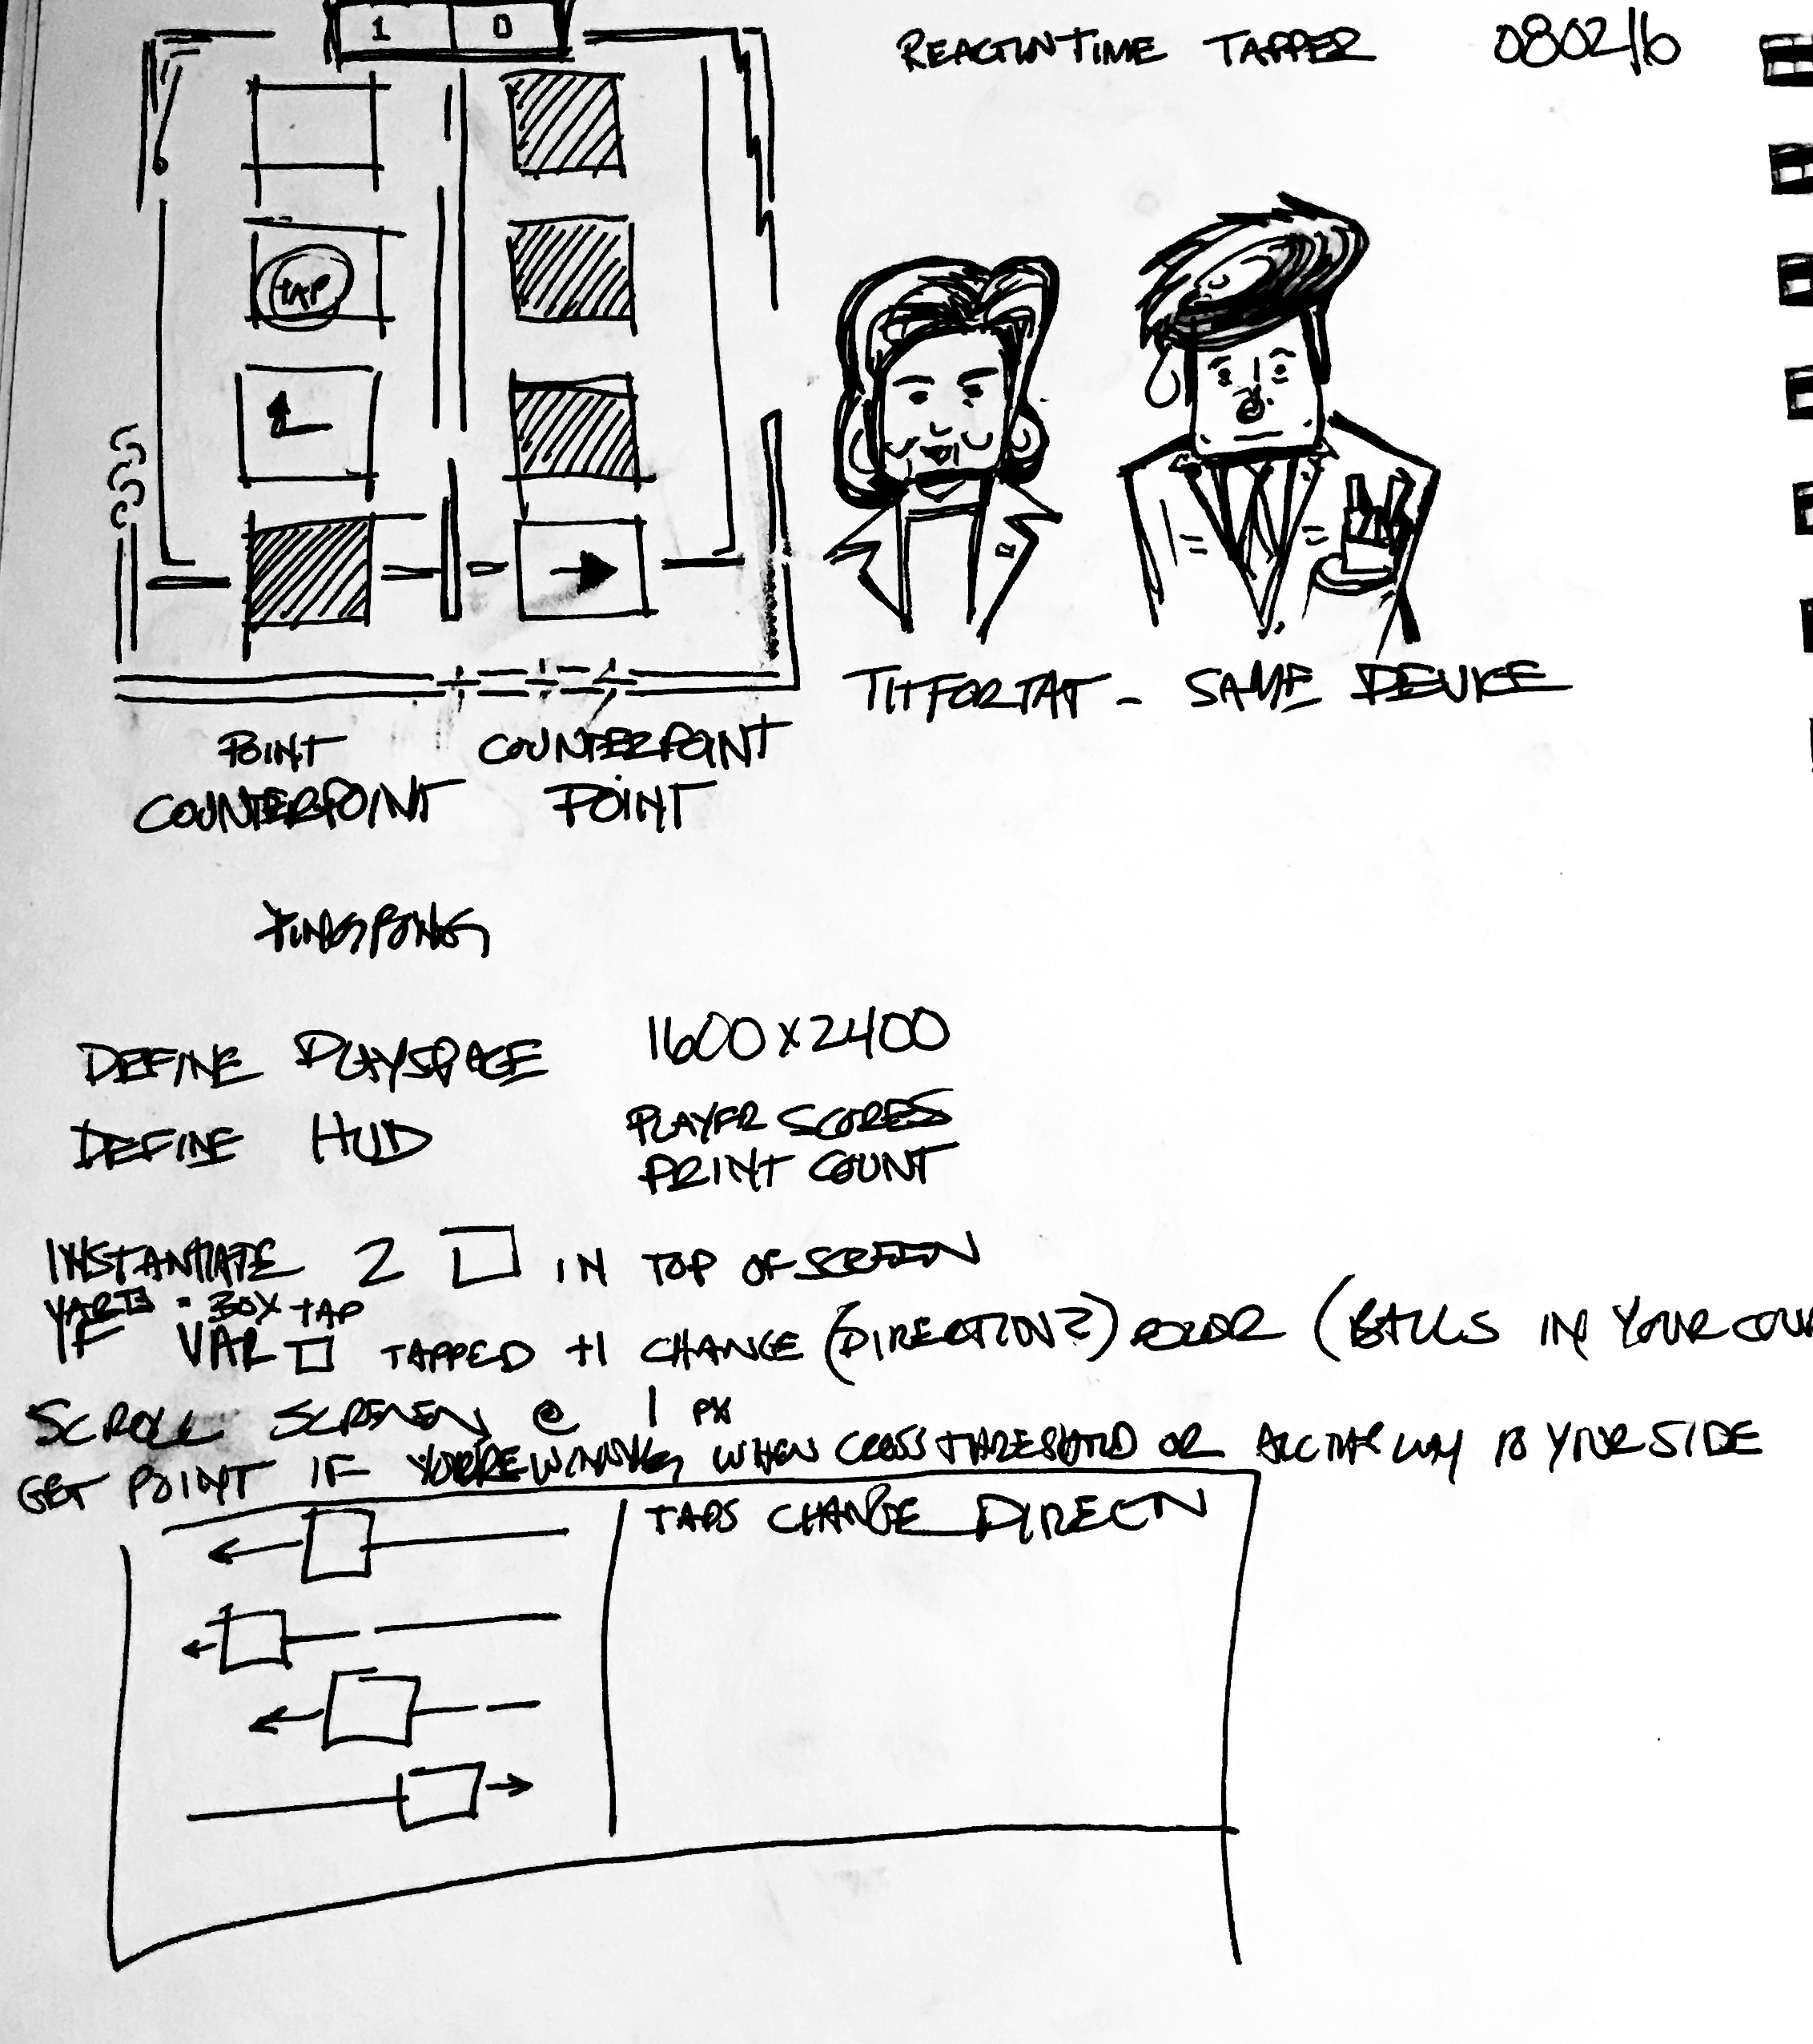 1 0
REACTION TIME TAPPER 080216
TAP
TITFORTAT - SAME DEVICE
POINT COUNTERPOINT
COUNTERPOINT POINT
DEFINE PLAYSPACE 1600x2400
DEFINE HUD PLAYER SCORES
PRINT COUNT
INSTANTIATE 2 IN TOP OF SCREEN
BOX TAP
IF VAR TAPPED +1 CHANGE (DIRECTION?) COLOR (BALLS IN YOUR COU
SCROLL SCREEN @ 1 PX
GET POINT IF YOU'RE WINNING WHEN CROSS THRESHOLD OR ALL THE WAY TO YOUR SIDE
TAPS CHANGE DIRECTN